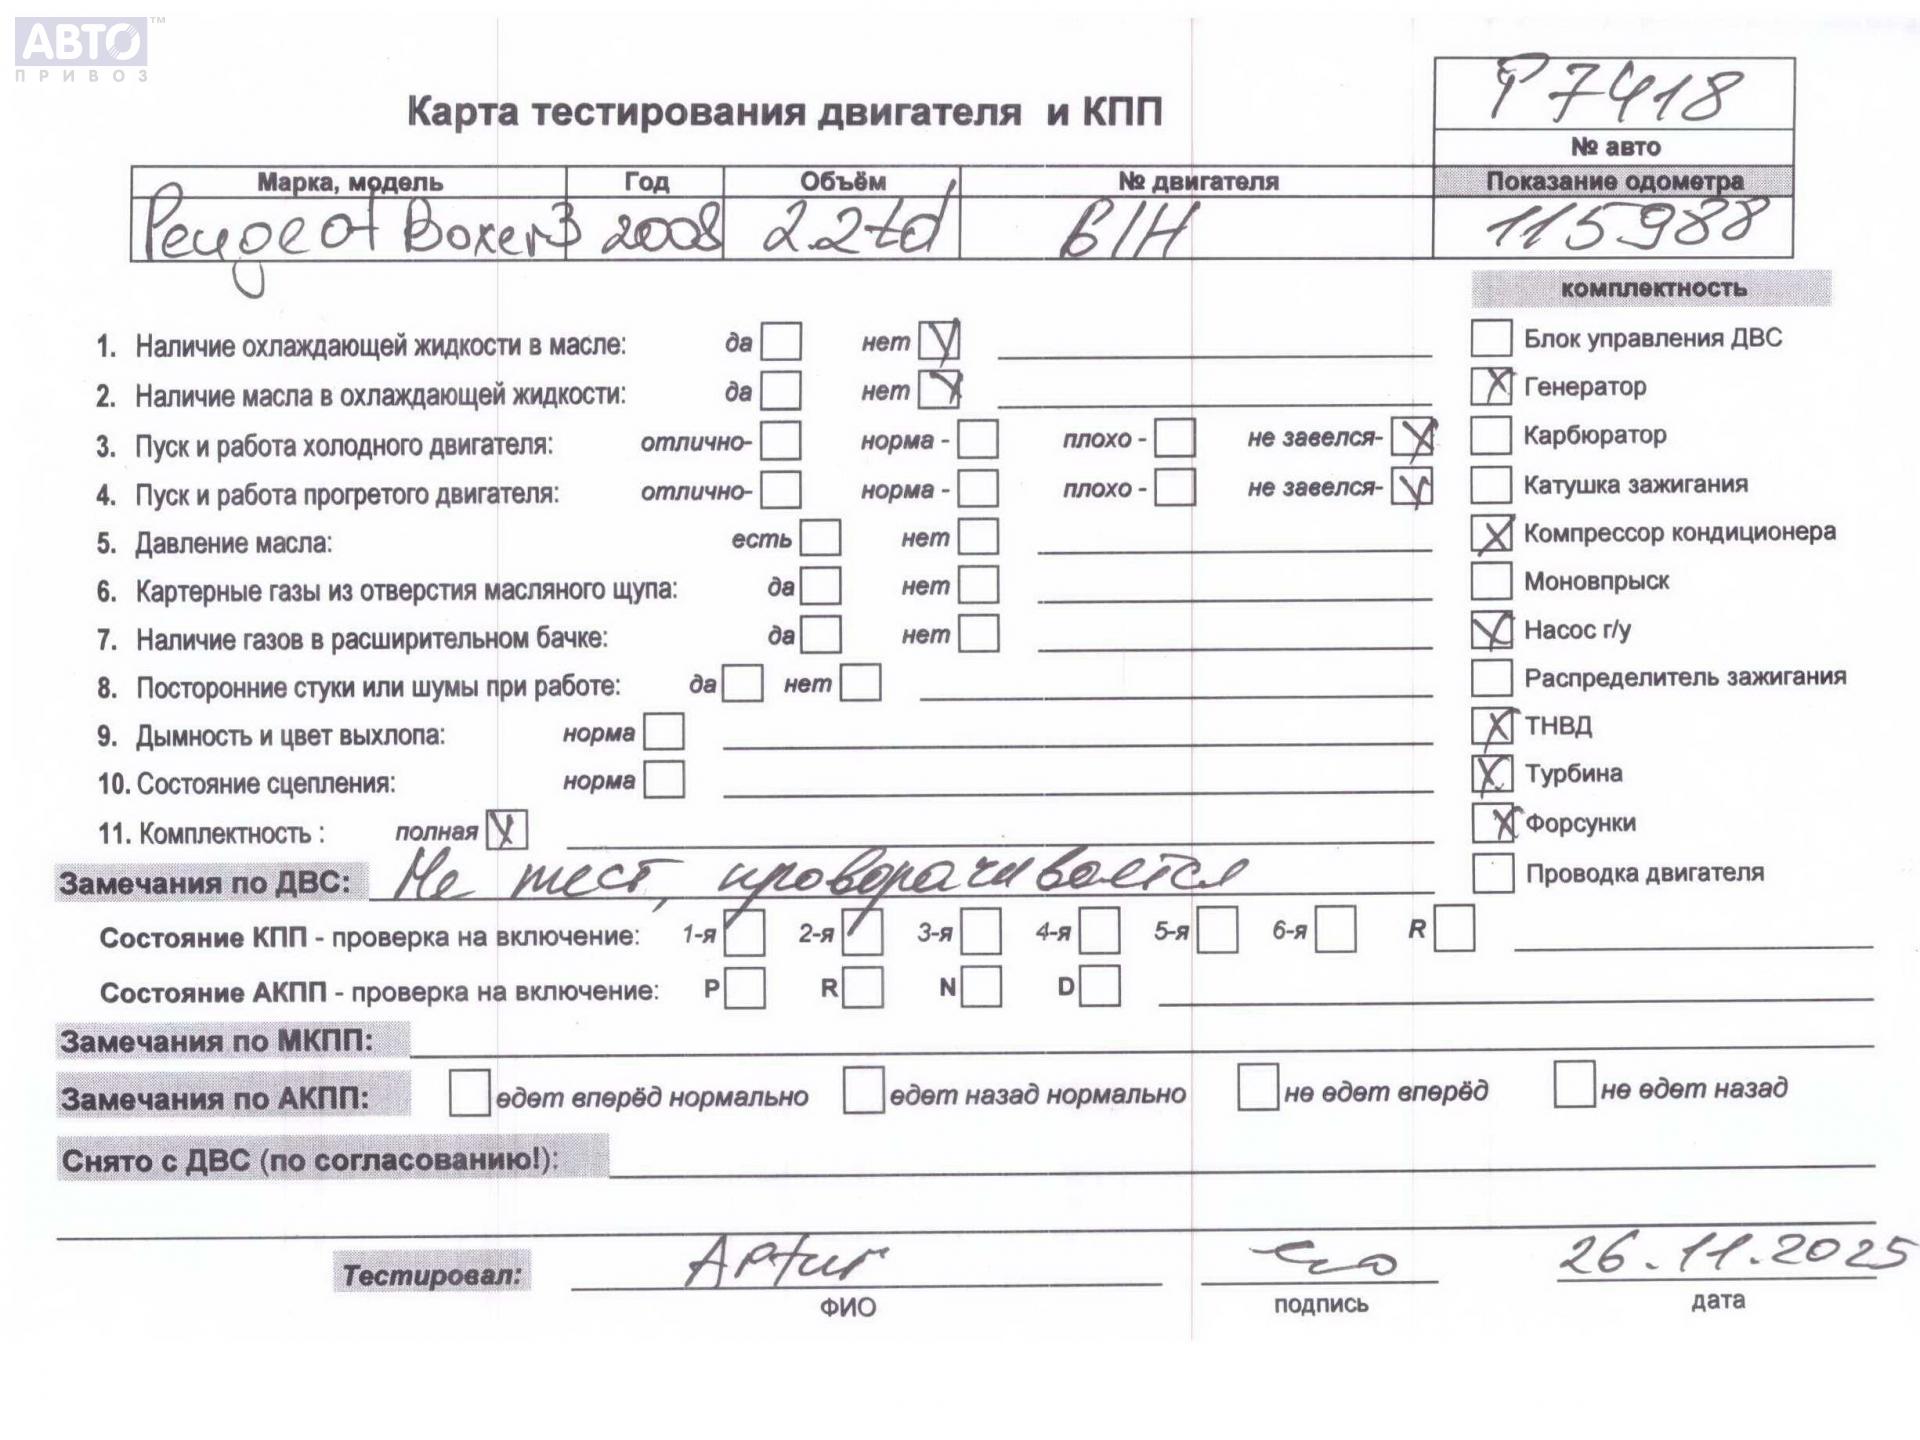 АВТО™
ПРИВОЗ
P7418
Карта тестирования двигателя и КПП
№ авто
Марка, модель Год Объём № двигателя Показание одометра
Peugeot Boxer 3 2008 2.2td 61H 115988
комплектность
1. Наличие охлаждающей жидкости в масле: да нет
Блок управления ДВС
2. Наличие масла в охлаждающей жидкости: да нет
Генератор
3. Пуск и работа холодного двигателя: отлично- норма - плохо - не завелся-
Карбюратор
4. Пуск и работа прогретого двигателя: отлично- норма - плохо - не завелся-
Катушка зажигания
5. Давление масла: есть нет
Компрессор кондиционера
6. Картерные газы из отверстия масляного щупа: да нет
Моновпрыск
7. Наличие газов в расширительном бачке: да нет
Насос г/у
8. Посторонние стуки или шумы при работе: да нет
Распределитель зажигания
9. Дымность и цвет выхлопа: норма
ТНВД
10. Состояние сцепления: норма
Турбина
11. Комплектность : полная
Форсунки
Замечания по ДВС: Не тест, проворачивается
Проводка двигателя
Состояние КПП - проверка на включение: 1-я 2-я 3-я 4-я 5-я 6-я R
Состояние АКПП - проверка на включение: P R N D
Замечания по МКПП:
Замечания по АКПП: едет вперёд нормально едет назад нормально не едет вперёд не едет назад
Снято с ДВС (по согласованию!):
Тестировал: Artur 26.11.2025
ФИО подпись дата